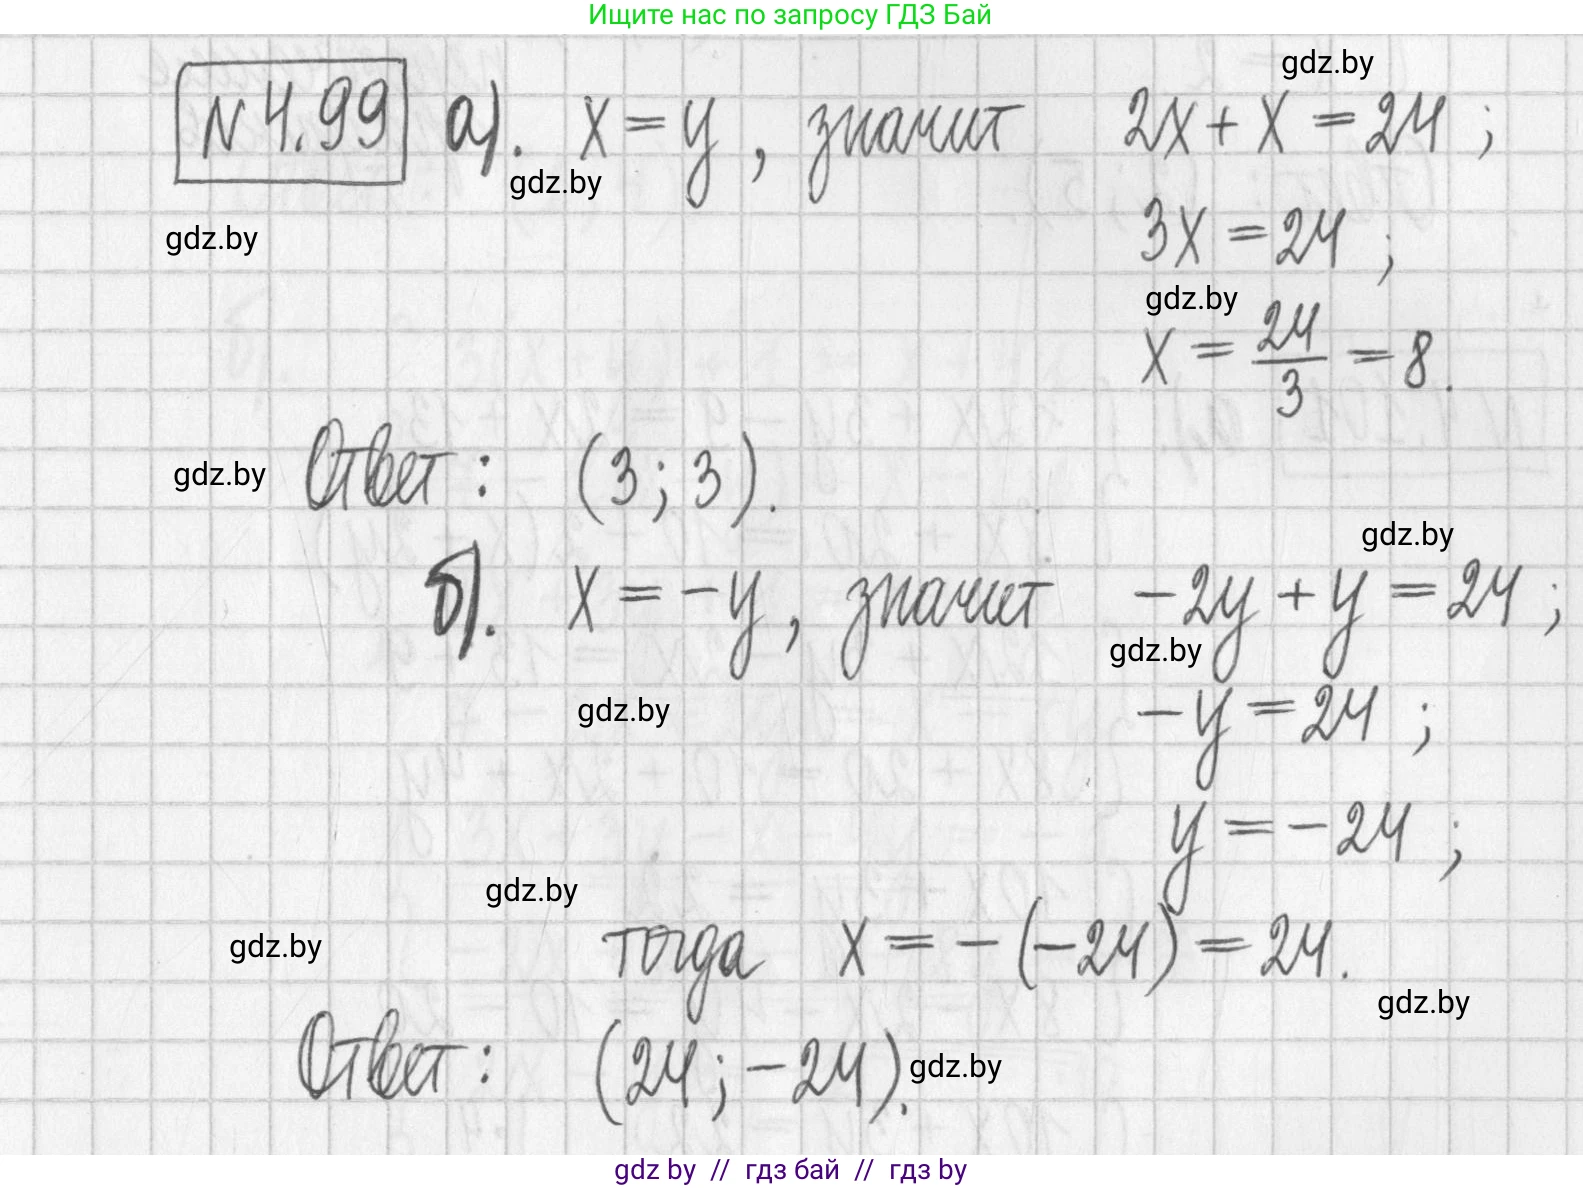 Ищите нас по запросу ГДЗ Бай
gdz.by
N 4.99 а). x = y , значит 2x + x = 24 ;
gdz.by
gdz.by
3x = 24 ;
gdz.by
x = 24/3 = 8.
gdz.by
Ответ : (3 ; 3).
gdz.by
б). x = -y , значит -2y + y = 24 ;
gdz.by
gdz.by
-y = 24 ;
y = -24 ;
gdz.by
gdz.by
тогда x = -(-24) = 24.
gdz.by
Ответ : (24 ; -24).
gdz.by
gdz by // гдз бай // гдз by